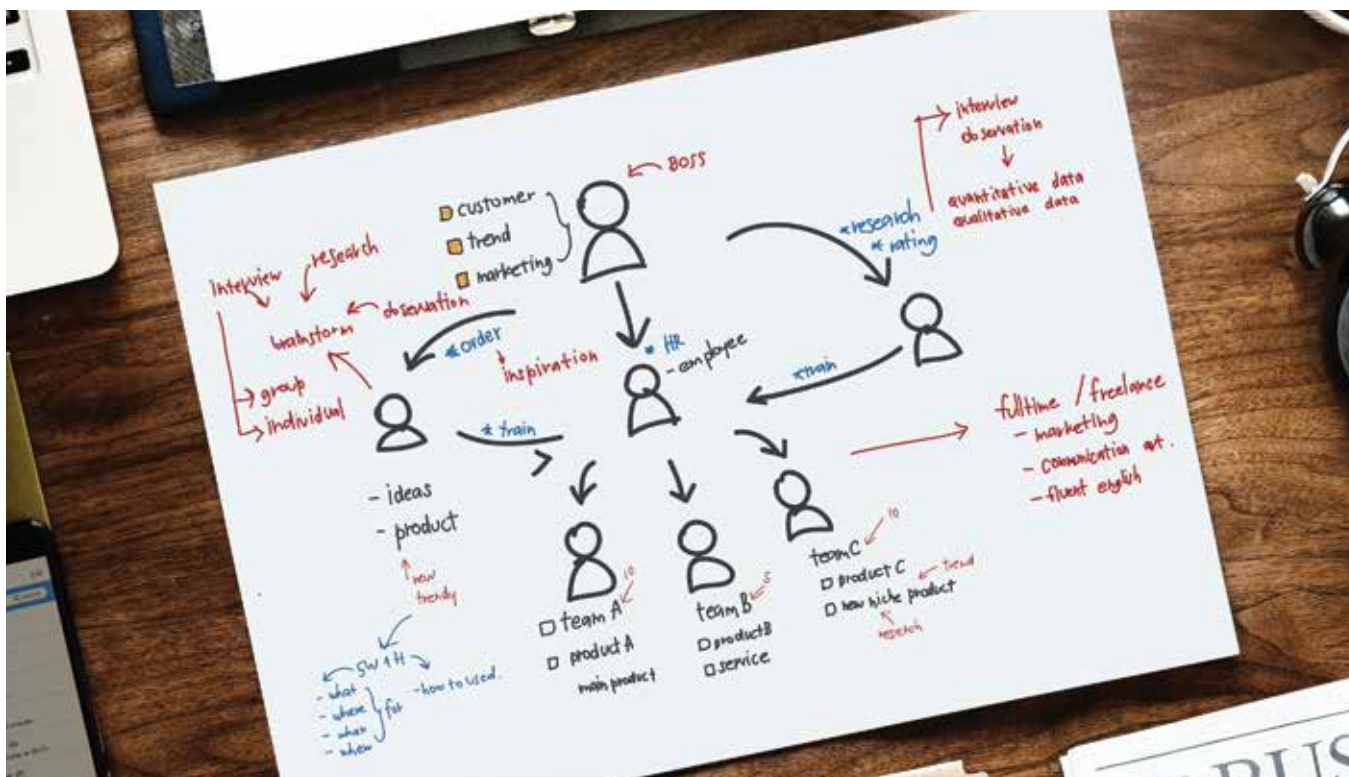 BOSS
customer
trend
marketing
interview
observation
quantitative data
qualitative data
*research
*rating
interview
research
observation
brainstorm
group
individual
*order
inspiration
* HR
- employee
*train
* train
- ideas
- product
new
trendy
5W1H
- what
- where
- when
for
- how to used.
fulltime / freelance
- marketing
- communication
- fluent english
team A
10
product A
main product
team B
5
product B
service
team C
10
product C
trend
new niche product
research
BUS